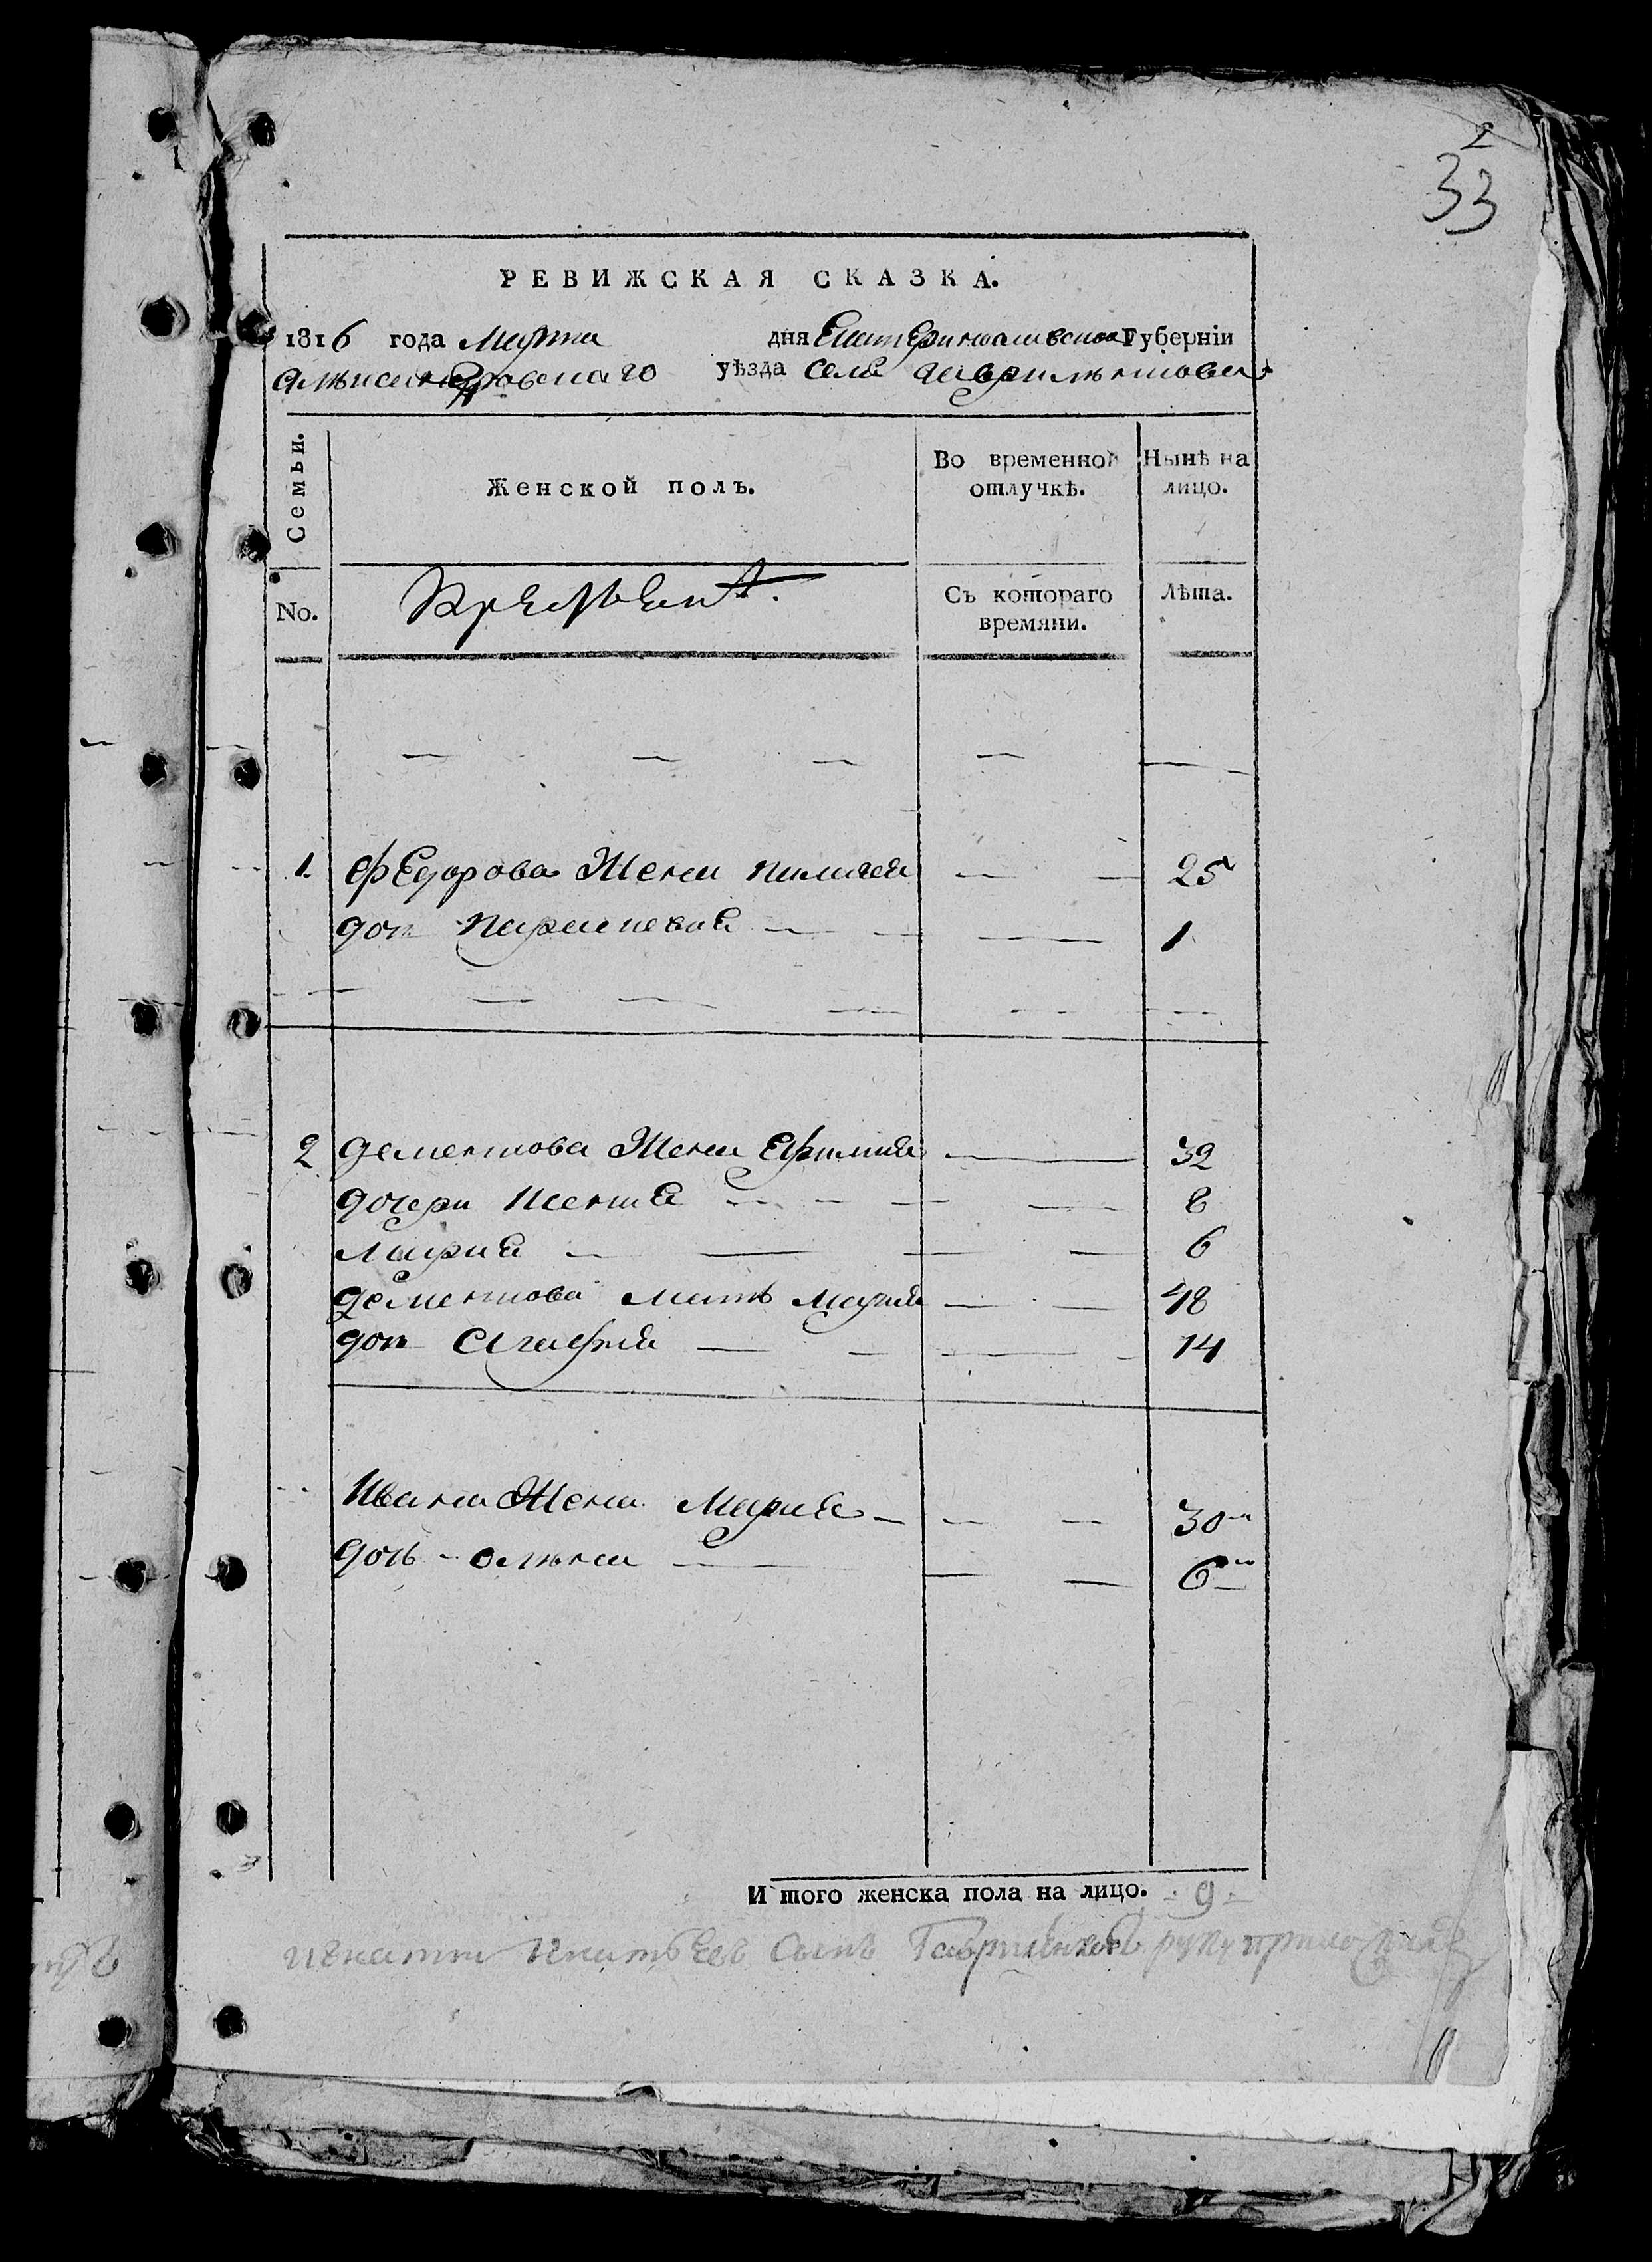 2
33
РЕВИЖСКАЯ СКАЗКА.
1816 года Марта дня Екатеринославской Губерніи
Александровскаго уѣзда села Гаврильковки
Семьи. Женской полъ. Во временной отлучкѣ. Нынѣ на лицо.
No. Съ котораго времяни. Лѣта.
1. Федорова Жена Пилагея 25
доч Парасковия 1
2 Дементова Жена Ефимия 32
дочери Ксения 8
Мария 6
Дементова мать Мария 48
доч Агафия 14
Ивана Жена Мария 30
дочь Олена 6
И того женска пола на лицо. 9
сынъ руку приложилъ